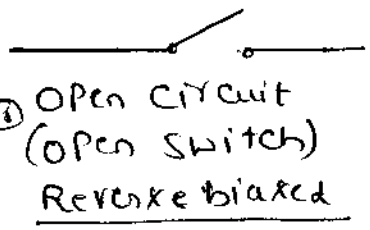 ① Open Circuit
(Open Switch)
Reverse biased